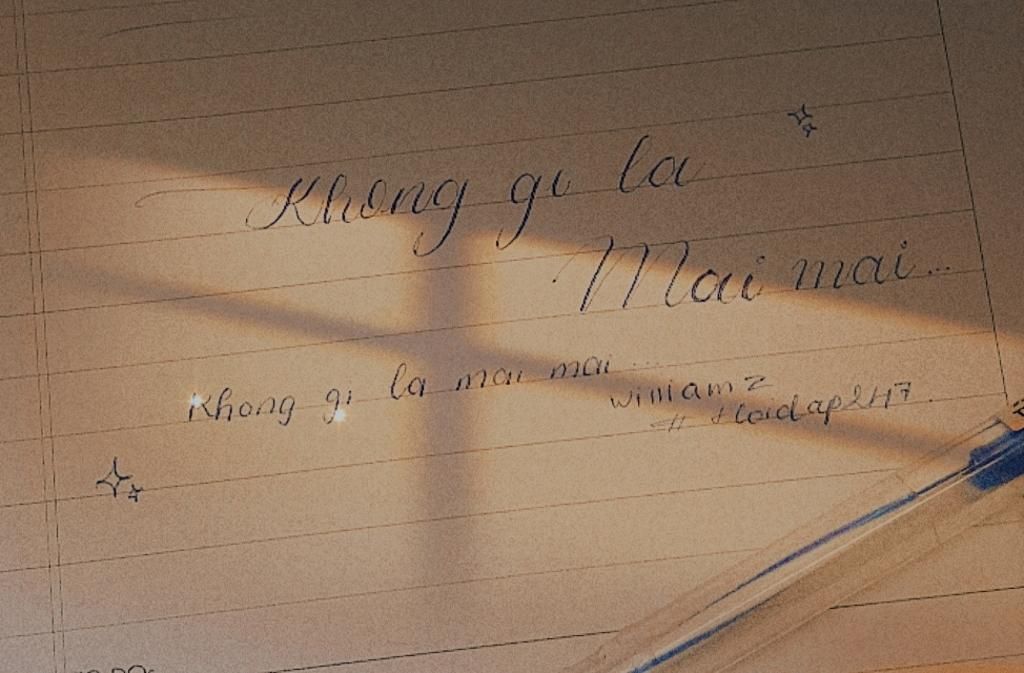 Khong gi la
Mai mai...
Khong gi la mai mai...
william z